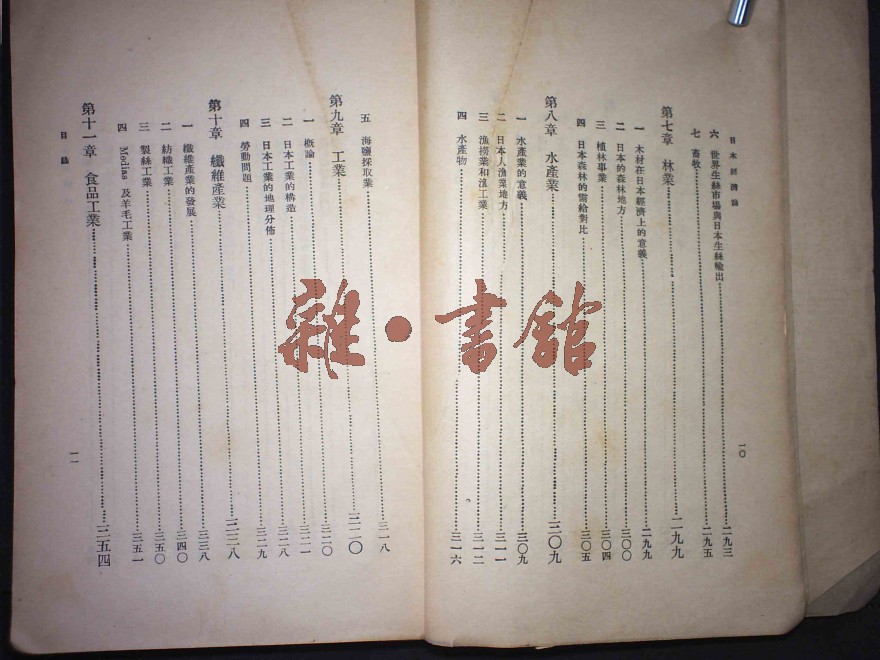 日本經濟論
一〇
六 世界生絲市場與日本生絲輸出……二九三
七 畜牧……二九五
第七章 林業……二九九
一 木材在日本經濟上的意義……二九九
二 日本的森林地方……三〇〇
三 植林事業……三〇四
四 日本森林的需給對比……三〇五
第八章 水產業……三〇九
一 水產業的意義……三〇九
二 日本人漁業地方……三一一
三 漁撈業和滙工業……三一二
四 水產物……三一六
五 海鹽採取業……三一八
第九章 工業……三二〇
一 概論……三二〇
二 日本工業的構造……三二八
三 日本工業的地理分佈……三二九
四 勞動問題
第十章 纖維產業……三三八
一 纖維產業的發展……三三八
二 紡織工業……三四〇
三 製絲工業……三五〇
四 Modian 及羊毛工業……三五一
第十一章 食品工業……三五四
目錄
一一
雜·書館